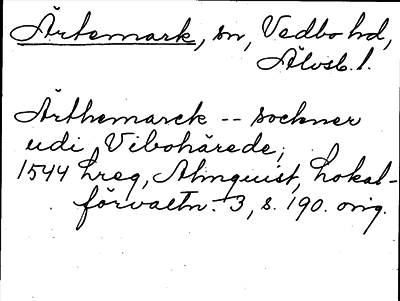 Ärtemark, sn, Vedbo hd,
Älvsb. l.
Ärthemarck -- sockner
udi Vibohärede;
1544 hreg, Almquist, Lokal-
förvaltn. 3, s. 190. orig.